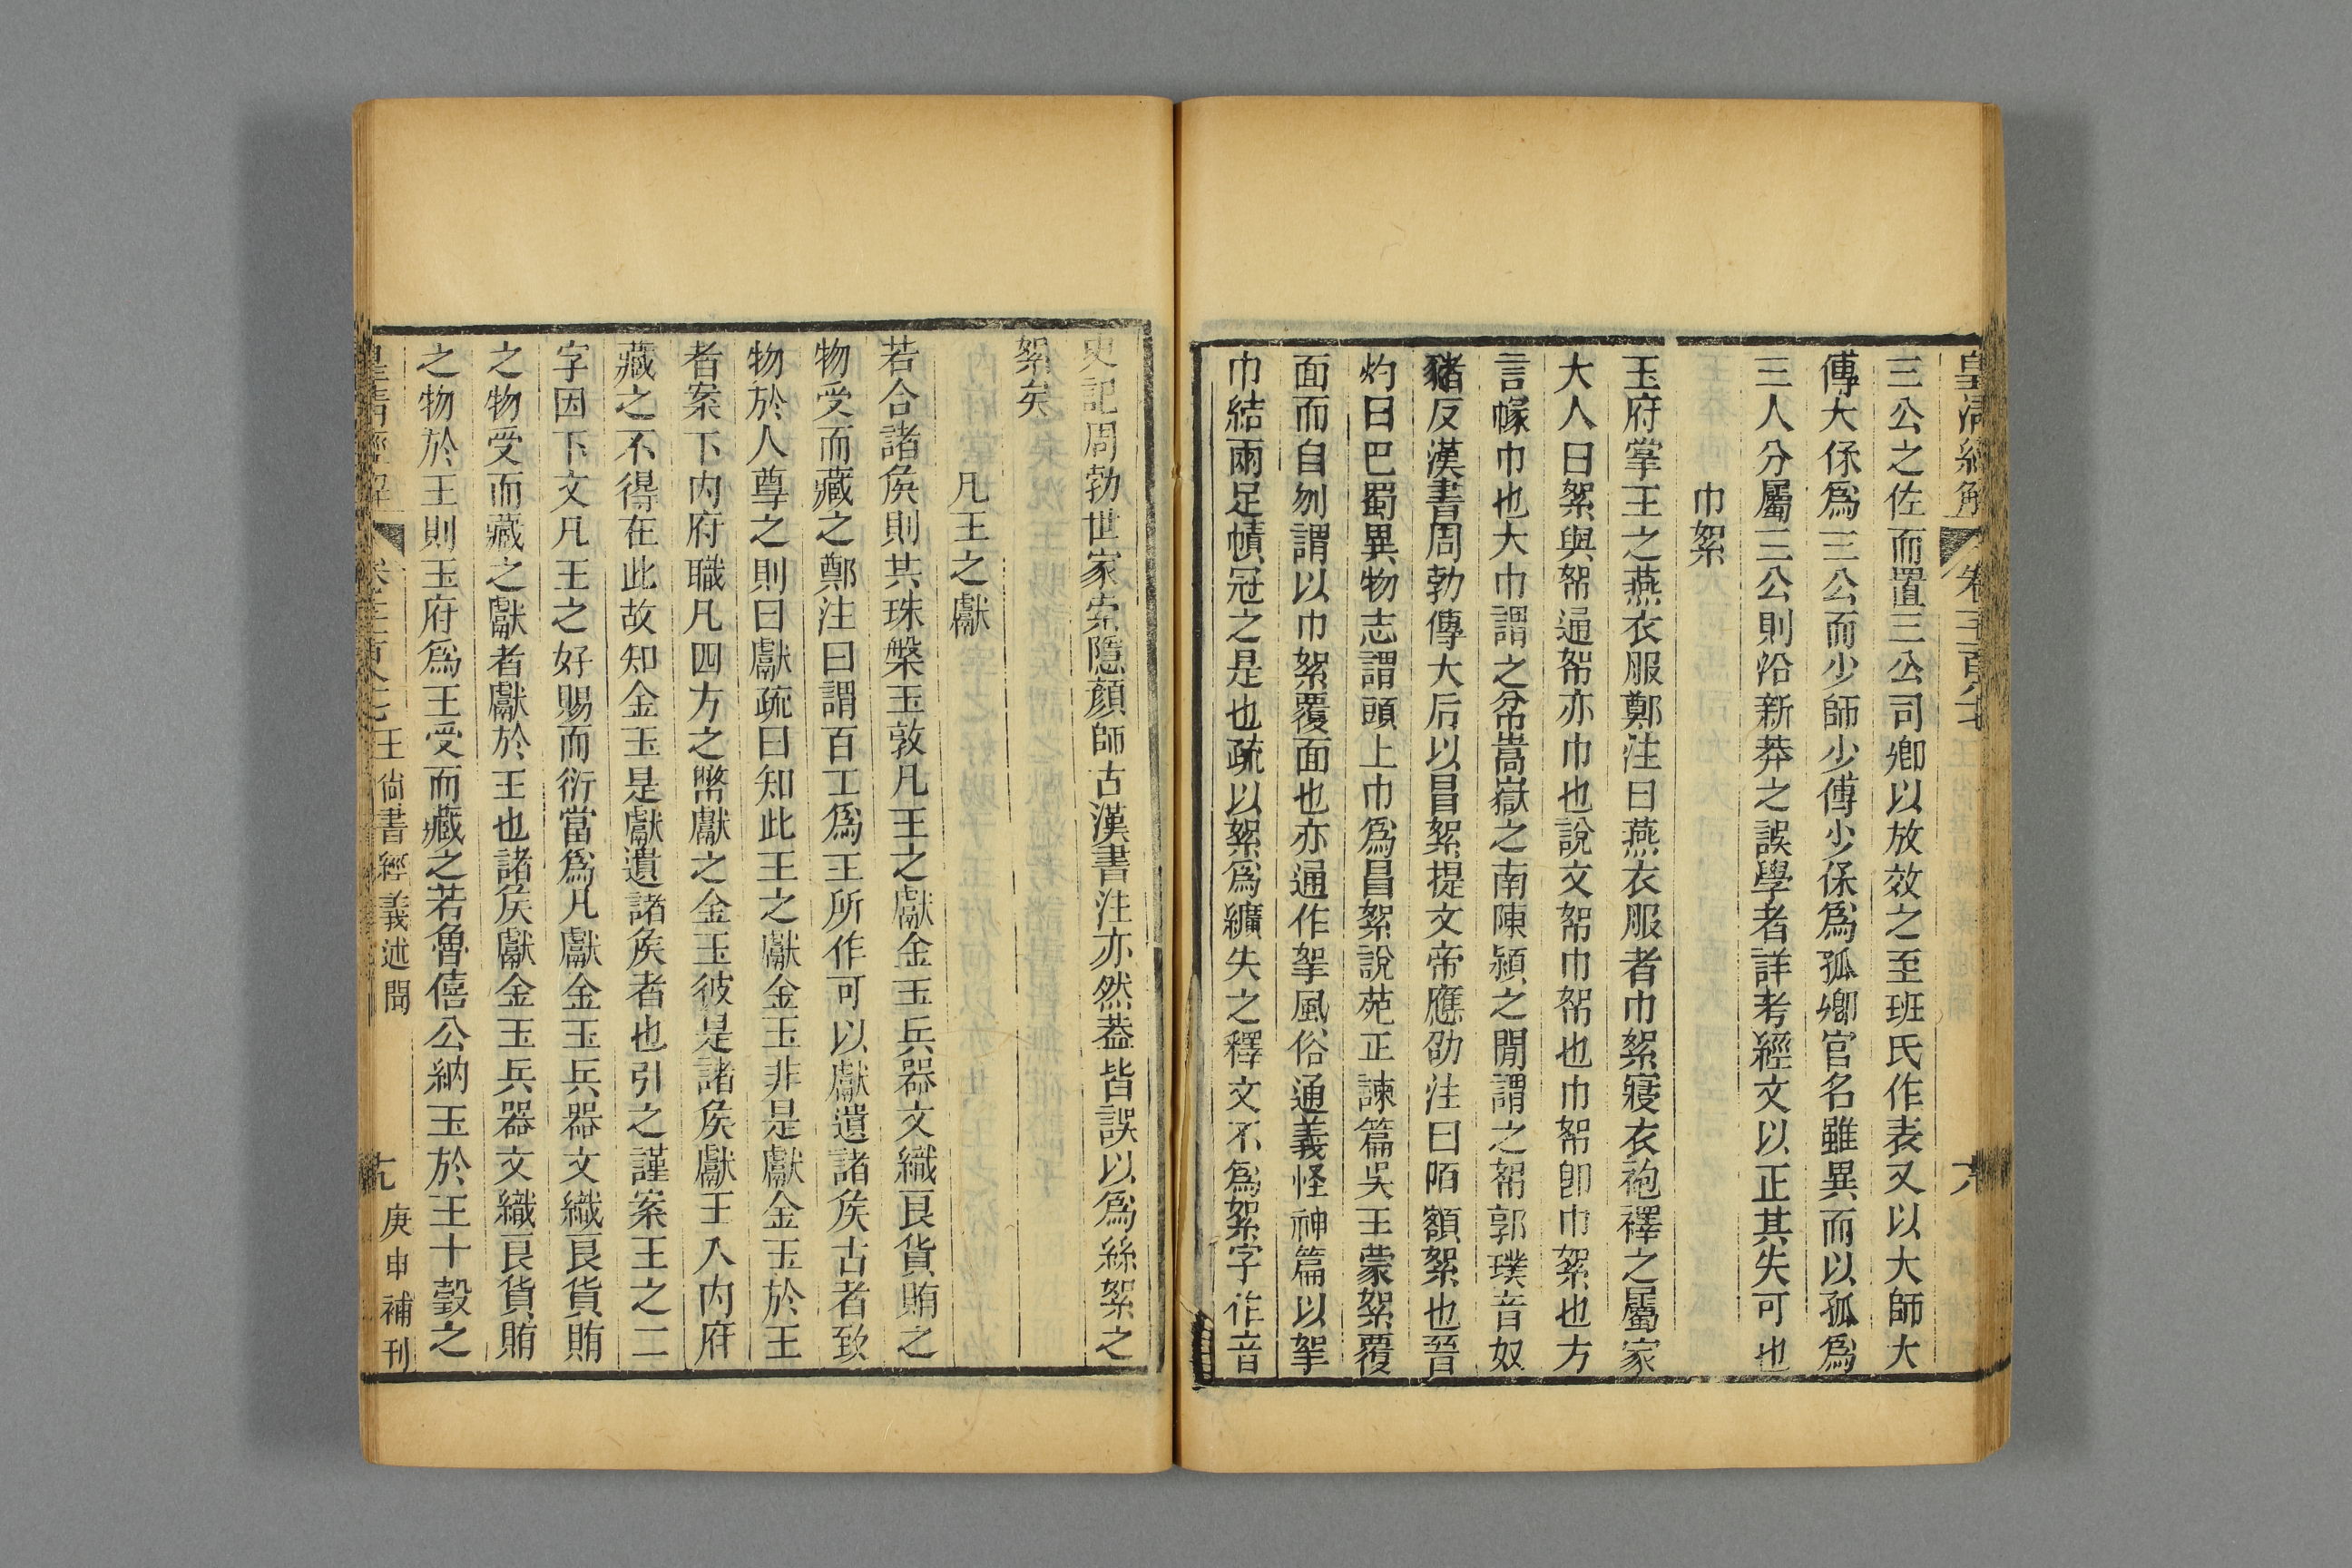 皇清經解 卷千一百八十七 六
三公之佐而置三公司卿以放效之至班氏作表又以大師大
傅大保爲三公而少師少傅少保爲孤卿官名雖異而以孤爲
三人分屬三公則沿新莽之誤學者詳考經文以正其失可也
巾絮
玉府掌王之燕衣服鄭注曰燕衣服者巾絮寢衣袍襗之屬家
大人曰絮與帤通帤亦巾也說文帤巾帤也巾帤卽巾絮也方
言幏巾也大巾謂之㡋嵩嶽之南陳潁之閒謂之帤郭璞音奴
豬反漢書周勃傳大后以冒絮提文帝應劭注曰陌額絮也晉
灼曰巴蜀異物志謂頭上巾爲冒絮說苑正諫篇吳王蒙絮覆
面而自刎謂以巾絮覆面也亦通作挐風俗通義怪神篇以挐
巾結兩足幘冠之是也疏以絮爲纊失之釋文不爲絮字作音
史記周勃世家索隱顏師古漢書注亦然葢皆誤以爲絲絮之
絮矣
凡王之獻
若合諸矦則共珠槃玉敦凡王之獻金玉兵器文織良貨賄之
物受而藏之鄭注曰謂百工爲王所作可以獻遺諸矦古者致
物於人尊之則曰獻疏曰知此王之獻金玉非是獻金玉於王
者案下內府職凡四方之幣獻之金玉彼是諸矦獻王入內府
藏之不得在此故知金玉是獻遺諸矦者也引之謹案王之二
字因下文凡王之好賜而衍當爲凡獻金玉兵器文織良貨賄
之物受而藏之獻者獻於王也諸矦獻金玉兵器文織良貨賄
之物於王則玉府爲王受而藏之若魯僖公納玉於王十瑴之
皇清經解 王尙書經義述聞 庚申補刊